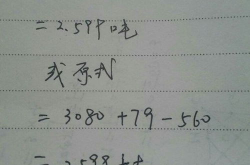 =2.599吨
或原式
=3080+79-560